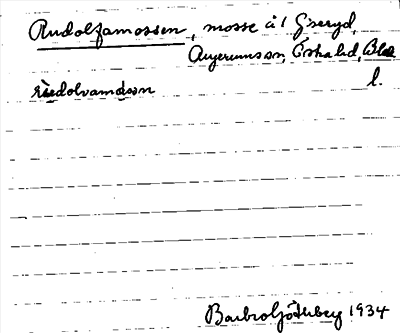 Rudolfamossen, mosse å l Gseryd,
Augerums sn, Östra hd, Blek
l.
rùdolvamósn
Barbro Göterberg 1934